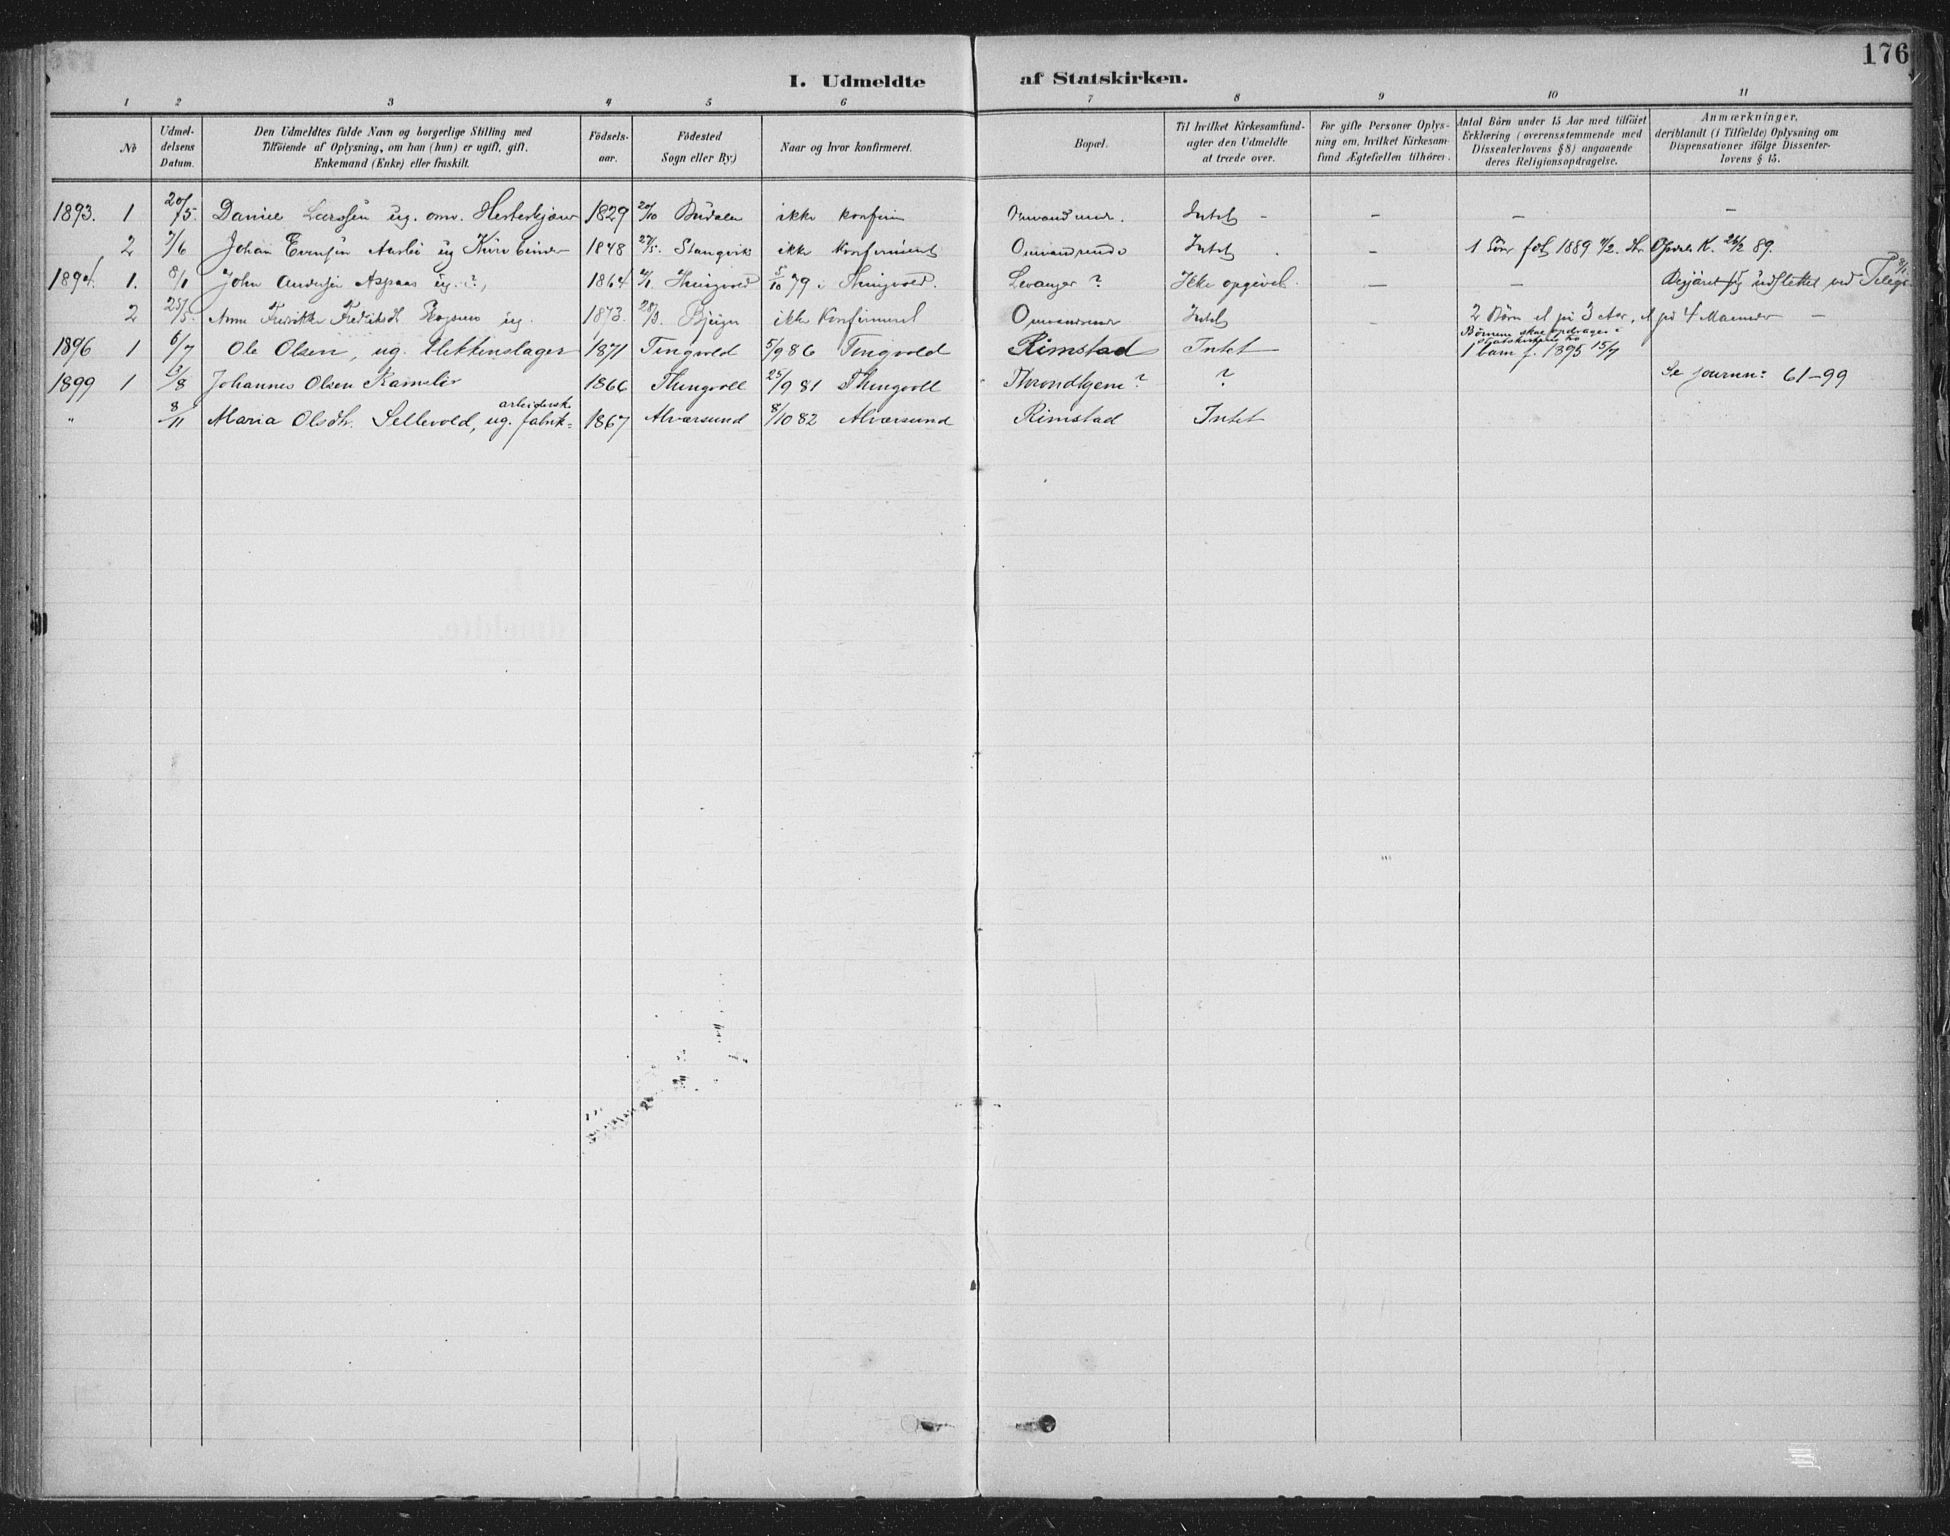 176
I. Udmeldte af Statskirken.
1 2 3 4 5 6 7 8 9 10 11
No
Udmel-
delsens
Datum.
Den Udmeldtes fulde Navn og borgerlige Stilling med
Tilföiende af Oplysning, om han (hun) er ugift, gift,
Enkemand (Enke) eller fraskilt.
Födsels-
aar.
Födested
Sogn eller By)
Naar og hvor konfirmeret.
Bopæl.
Til hvilket Kirkesamfund-
agter den Udmeldte
at træde over.
For gifte Personer Oplys-
ning om, hvilket Kirkesam-
fund Ægtefællen tilhörer.
Antal Börn under 15 Aar med tilföiet
Erklæring (overensstemmende med
Dissenterlovens § 8) angaaende
deres Religionsopdragelse.
Anmærkninger,
deriblandt (i Tilfælde) Oplysning om
Dispensationer ifölge Dissenter-
lovens § 15.
1893. 1 20/5. Daniel Larssen ug. omv. 1829 20/10 Budalen ikke konfirm Omvandrende. Intet - - - -
2 7/6 Johan Evensen ug 1848 27/5. Stangvik ikke Konfirmeret Omvandrende Intet - 1 Sön föd 1889 K. 89.
1894. 1. 8/1 John Andersen Aspaas ug. ?, 1864 Thingvold 5/10 79 i Thingvold. Levanger ? Ikke opgivet. - - Begjæret sig udslettet ved
2 25/5. Anna Fredrikke Fredriksdt. ug. 1873. Bjugn ikke Konfirmeret Omvandrende Intet 2 Börn et på 3 Aar, et på 4 Maaneder -
Börnene skal opdrages i
Statskirkens
1896 1 6/7 Ole Olsen, ug. 1871 Tingvold 5/9 86 Tingvold Rimstad Intet 1 barn f. 1895 15/7
1899 1 3/8 Johannes Olsen 1866 Thingvoll 25/9 81 Thingvoll Throndhjem ? ? Se journ: 61-99
arbeidersk
" 8/11 Maria Olsdt. Sellevold, ug. fabrik= 1867 Alværsund 8/10 82 Alværsund Rimstad Intet